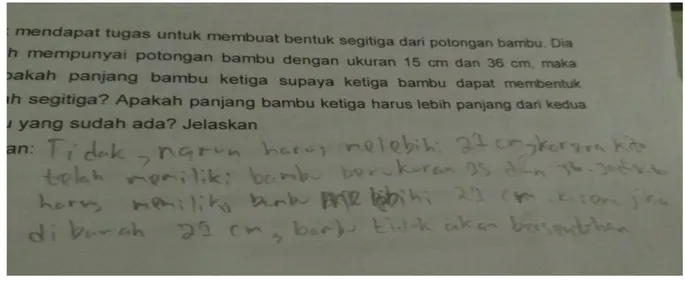 mendapat tugas untuk membuat bentuk segitiga dari potongan bambu. Dia
h mempunyai potongan bambu dengan ukuran 15 cm dan 36 cm, maka
pakah panjang bambu ketiga supaya ketiga bambu dapat membentuk
ah segitiga? Apakah panjang bambu ketiga harus lebih panjang dari kedua
u yang sudah ada? Jelaskan
an: Tidak, namun harus melebihi 21 cm, karena kita
telah memiliki bambu berukuran dan 36.
harus memiliki bambu melebihi 21 cm. jika
di bawah 21 cm, bambu tidak akan bersentuhan